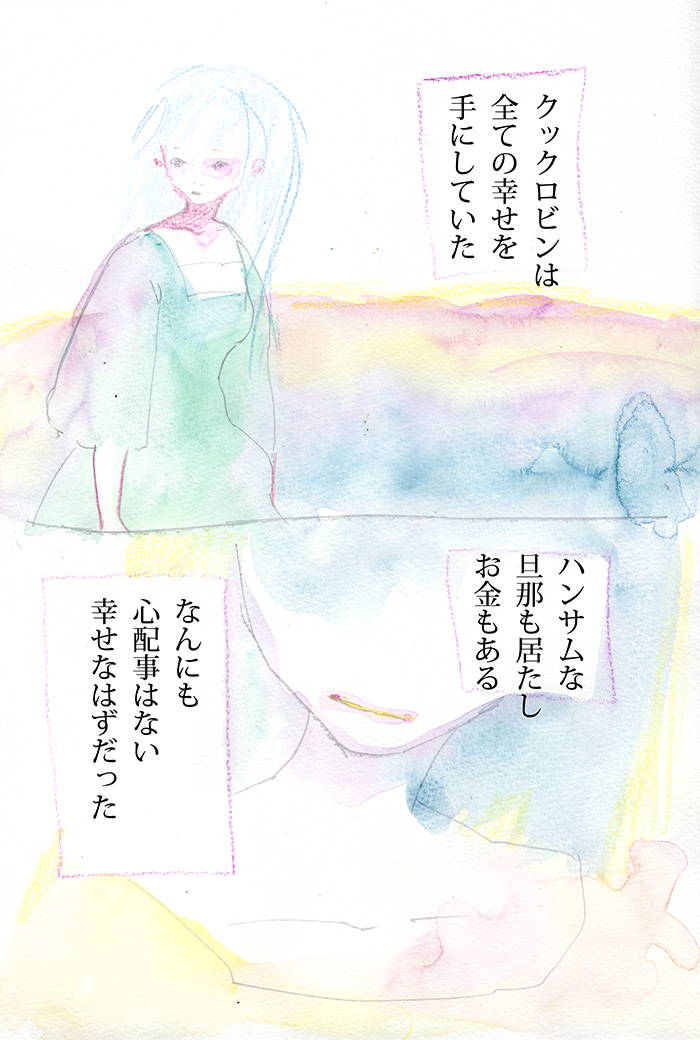 クックロビンは
全ての幸せを
手にしていた
ハンサムな
旦那も居たし
お金もある
なんにも
心配事はない
幸せなはずだった